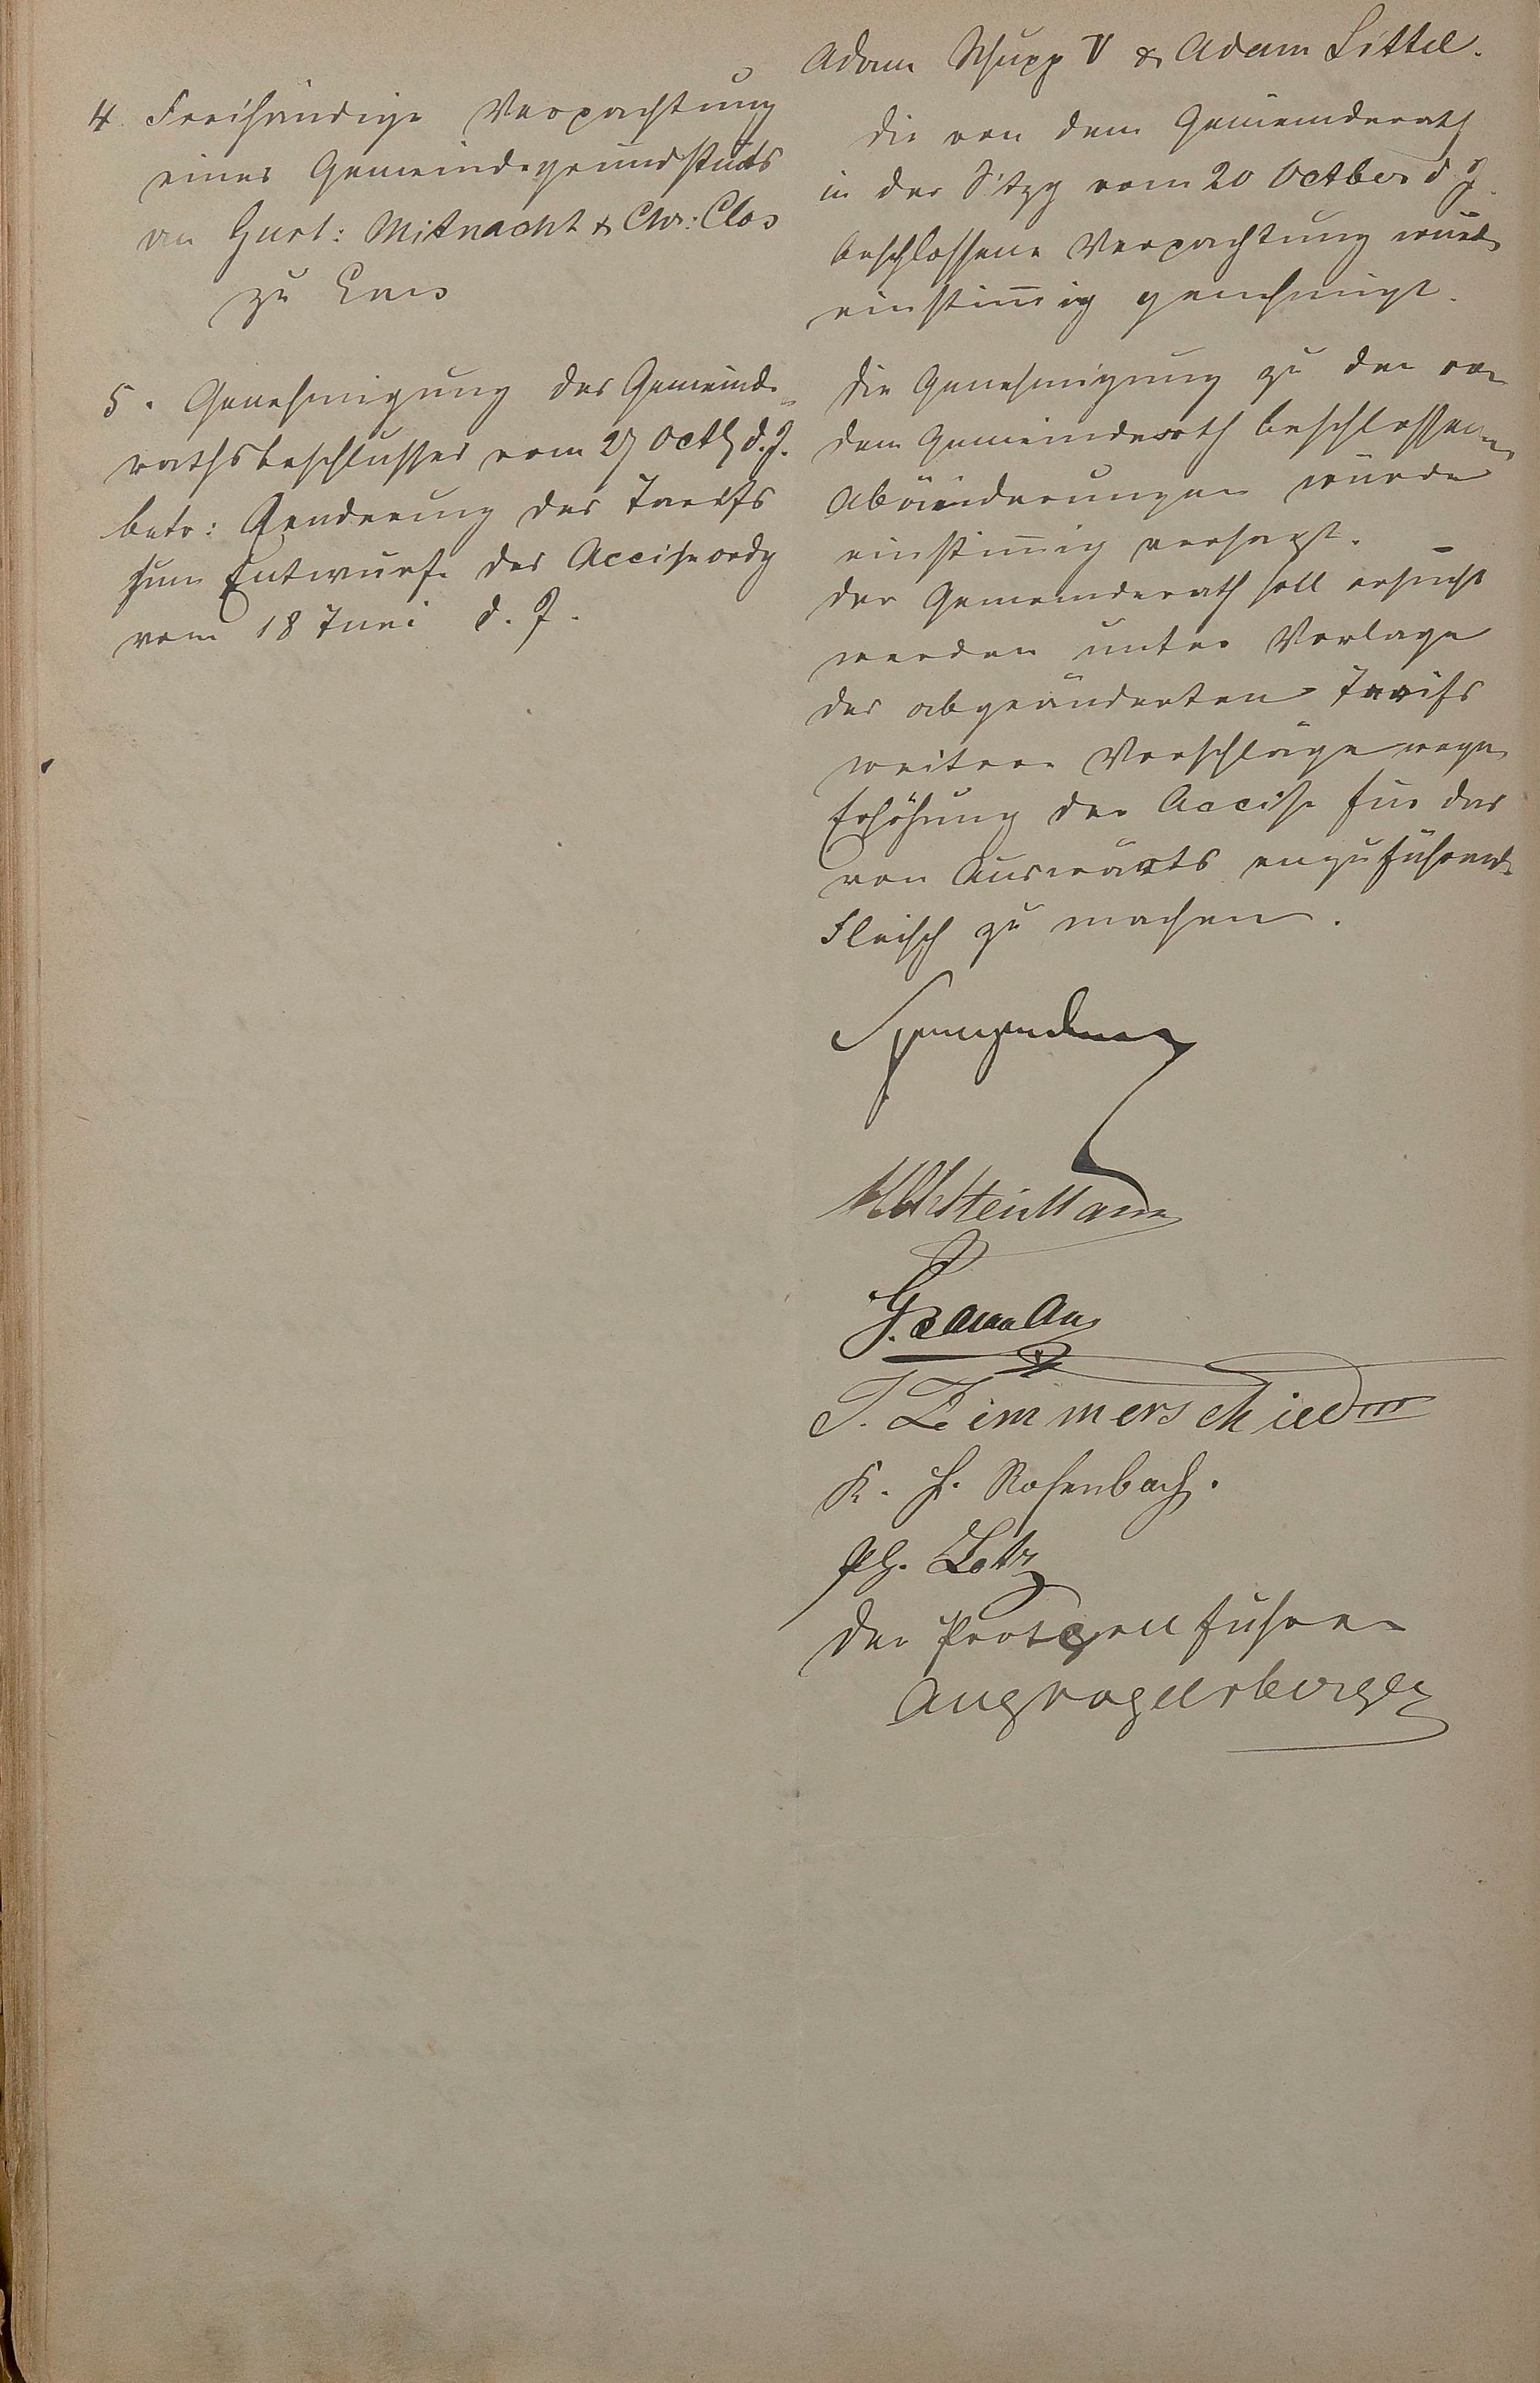 Adam Schupp V & Adam Littel.
4. Freihändige Verpachtung
eines Gemeindegrundstücks
an Gust: Mitnacht & Chr: Clos
zu Ems
die von dem Gemeinderath
in der Sitzg vom 20 October d J.
beschlossene Verpachtung wurde
einstim̄ig genehmigt.
5. Genehmigung des Gemeinde-
rathsbeschlusses vom 27 Octb d. J.
betr: Aenderung des Tarifs
zum Entwurfe der Acciseordg
vom 18 Juni d. J.
die Genehmigung zu den von
dem Gemeinderath beschlossenen
Abänderungen wurde
einstim̄ig versagt. –
der Gemeinderath soll ersucht
werden unter Vorlage
des abgeänderten Tarifs
weitere Vorschläge wegen
Erhöhung der Accise für das
von Auswärts einzuführende
Fleisch zu machen.
Spangenberg
J. Zimmerschied
K. H. Rosenbach.
Ph. Lotz
der Protocollführer
Aug Vogelsberger